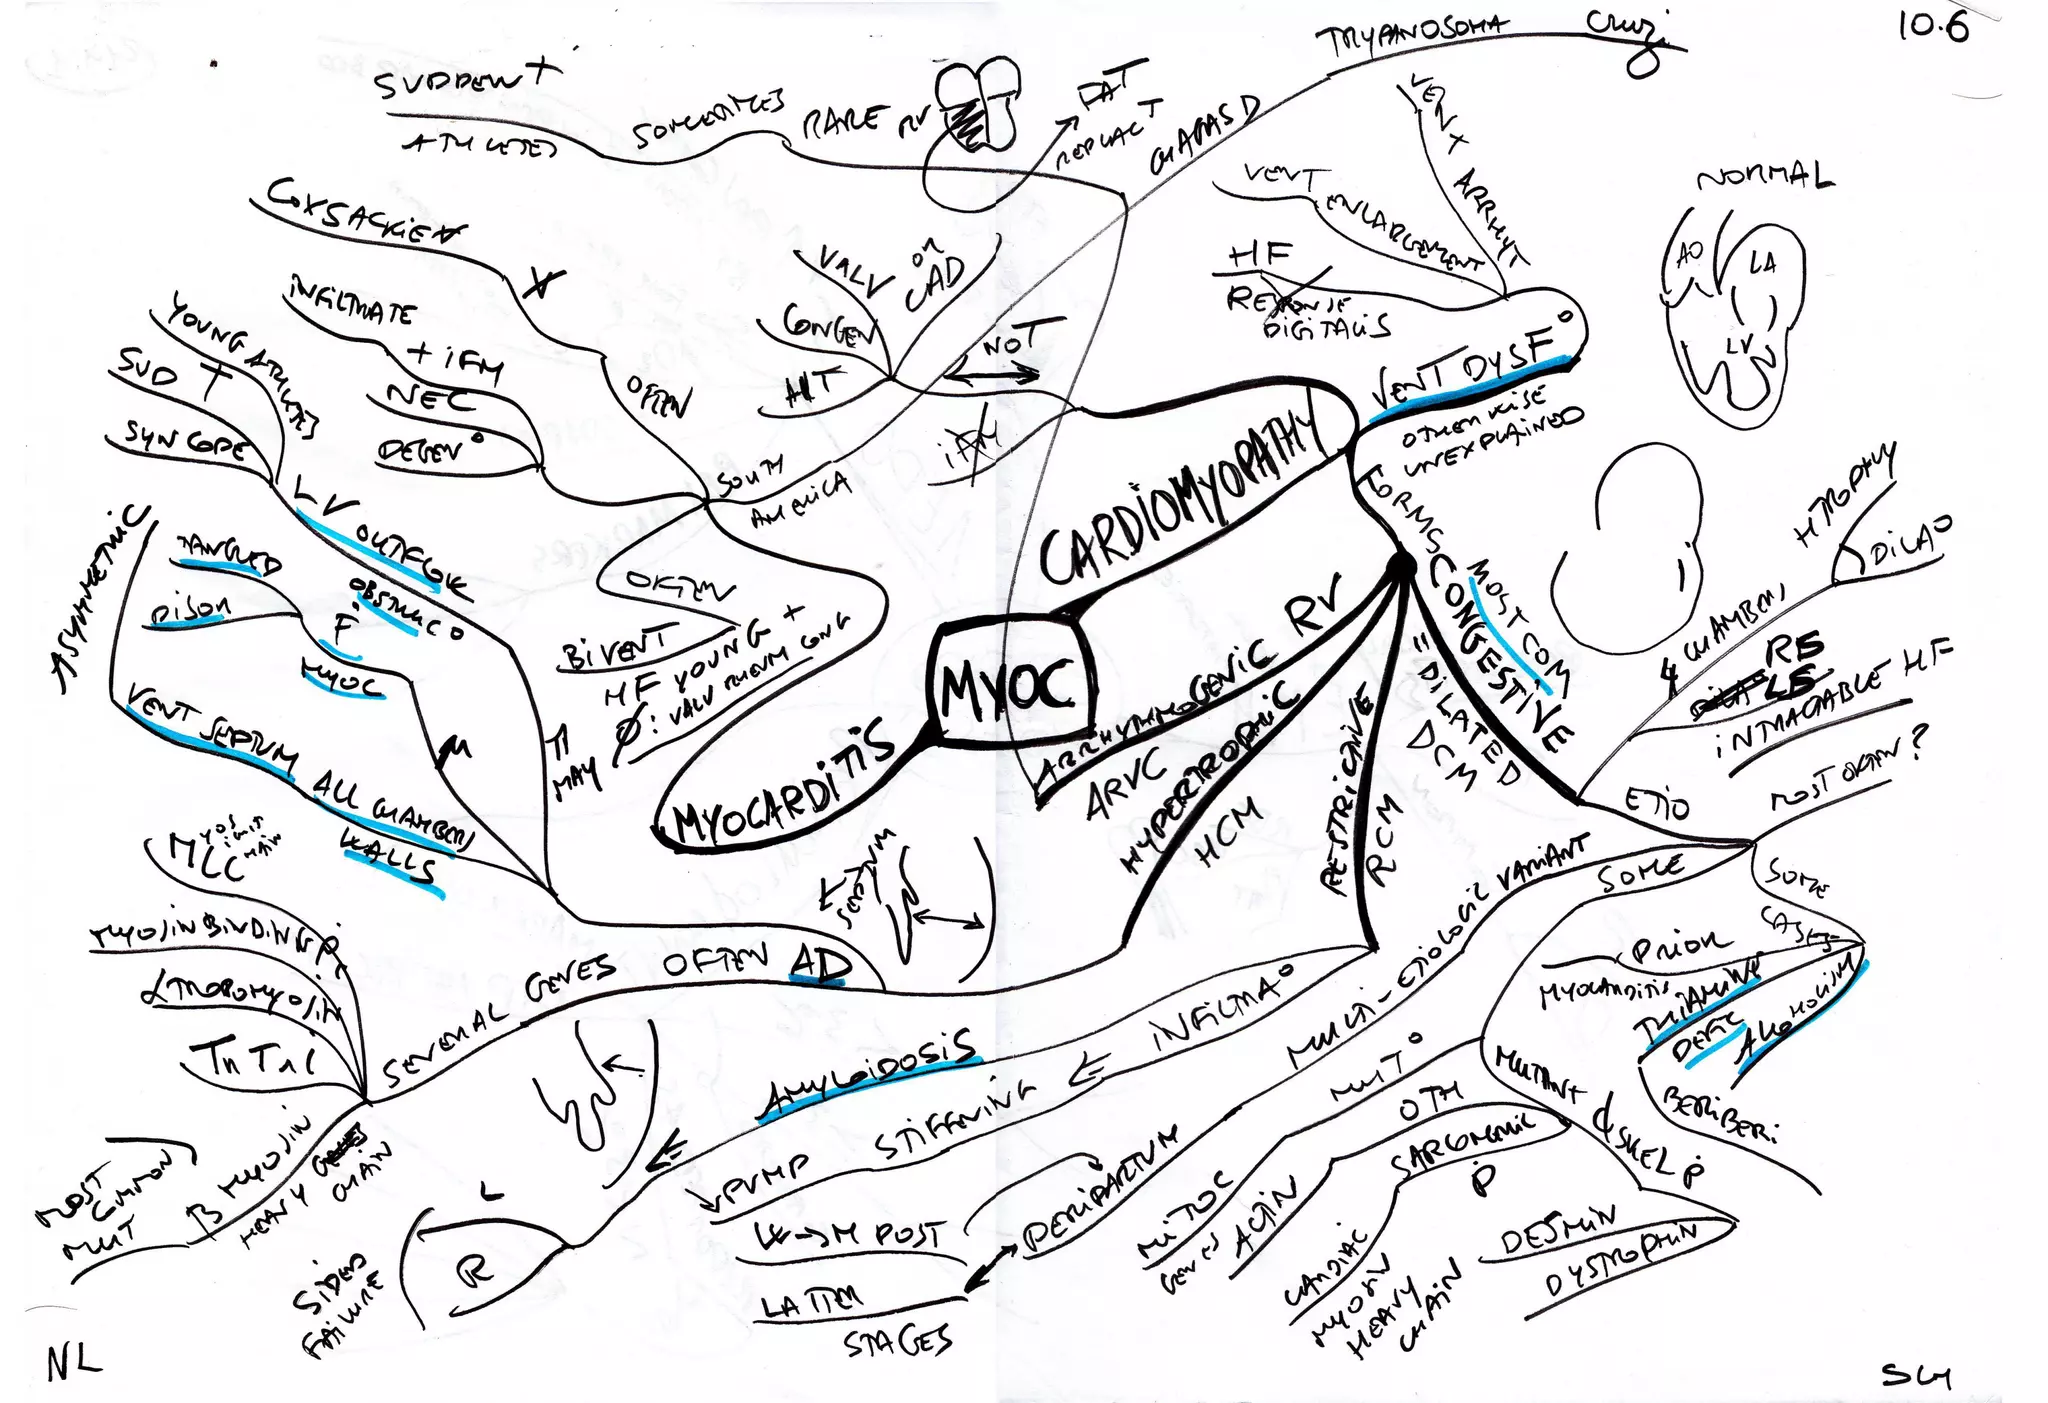 10.6
TRYPANOSOMA Cruzi
CHAGAS D
SUDDEN †
ATHLETES
SOMETIMES
RARE RV
FAT
REPLAC T
COXSACKIE V
V
OFTEN
INFILTRATE
+ IFM
NEC
DEGEN°
VALV
OR
CAD
CONGEN
HT
NOT
IFM
SOUTH
AMERICA
OFTEN
BIVENT
HF YOUNG +
Ø: VALV RHEUM CONG
VENT
ENLARGEMENT
VENT
ARRHYT
HF
RESPONSE
DIGITALIS
VENT DYSF°
OTHERWISE
UNEXPLAINED
NORMAL
AO
LA
LV
CARDIOMYOPATHY
MYOC
MYOCARDITIS
FORMS
MOST COM
CONGESTIVE
= DILATED
DCM
ARRHYTHMOGENIC RV
ARVC
HYPERTROPHIC
HCM
RESTRICTIVE
RCM
HTROPHY
DILA°
4 CHAMBERS
RS
LS
INTRACTABLE HF
ETIO
MOST OKAN?
SOME
SOME
CASES
PRIOR
MYOCARDITIS
THIAMINE
DEFIC
ALCOHOLISM
BERIBERI
MULTI-ETIOLOGIC VARIANT
MUT°
MUTANT
SKEL P
OTH
SARCOMERIC
P
DESMIN
DYSTROPHIN
MITOC
GENES
ACTIN
CARDIAC
MYOSIN
HEAVY
CHAIN
PERIPARTUM
LATTER
STAGES
M POST
INFILTRA°
STIFFENING
↓ PUMP
AMYLOIDOSIS
L
R
SIDED
FAILURE
YOUNG ATHLETES
SUD †
SYNCOPE
LV OUTFLOW
OBSTRUC°
MAY
ASYMMETRIC
TANGLED
DISOR
F:
MYOC
VENT SEPTUM
ALL CHAMBERS
WALLS
SEPTUM
SEVERAL GENES OFTEN AD
MLC
MYOSIN BINDING P
α TROPOMYOSIN
TnT nI
β MYOSIN
HEAVY CHAIN
MOST
COMMON
MUT
NL